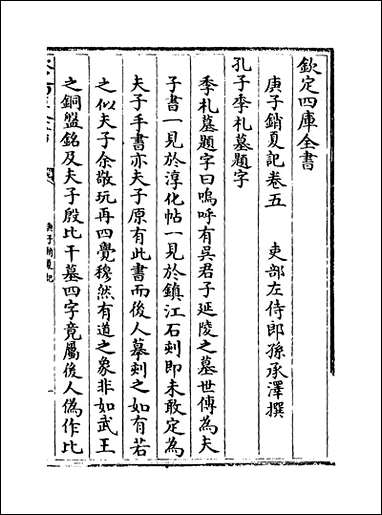 欽定四庫全書
庚子銷夏記卷五　　吏部左侍郎孫承澤撰
孔子季札墓題字
季札墓題字曰嗚呼有吳君子延陵之墓世傳為夫
子書一見於淳化帖一見於鎮江石刻即未敢定為
夫子手書亦夫子原有此書而後人摹刻之如有若
之似夫子余敬玩再四覺穆然有道之象非如武王
之銅盤銘及夫子殷比干墓四字竟屬後人偽作比
庚子銷夏記
一